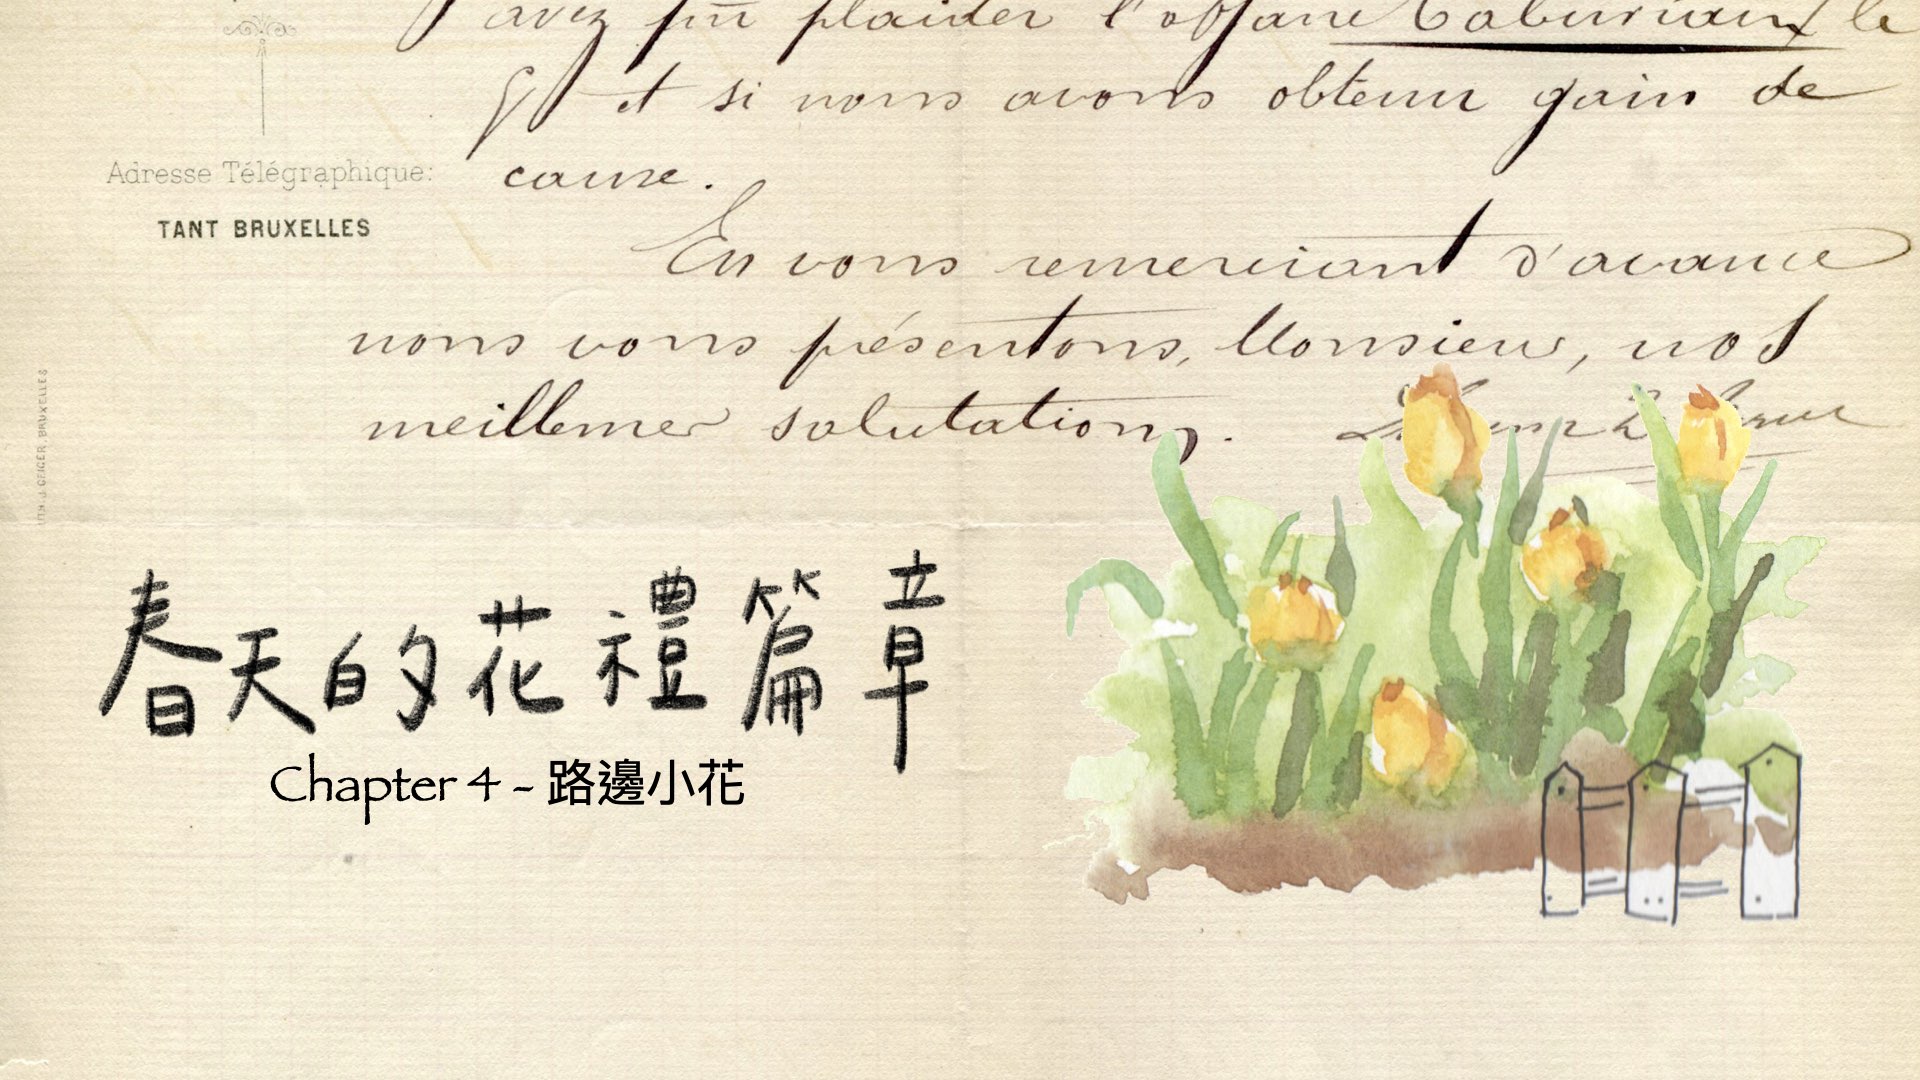 avez pu plaider l'affaire le
et si nous avons obtenu gain de
cause.
Adresse Télégraphique:
TANT BRUXELLES
En vous remerciant d'avance
nous vous présentons, Monsieur, nos
meilleures salutations.
LITH. J. GEIGER, BRUXELLES
春天的花禮篇章
Chapter 4 - 路邊小花